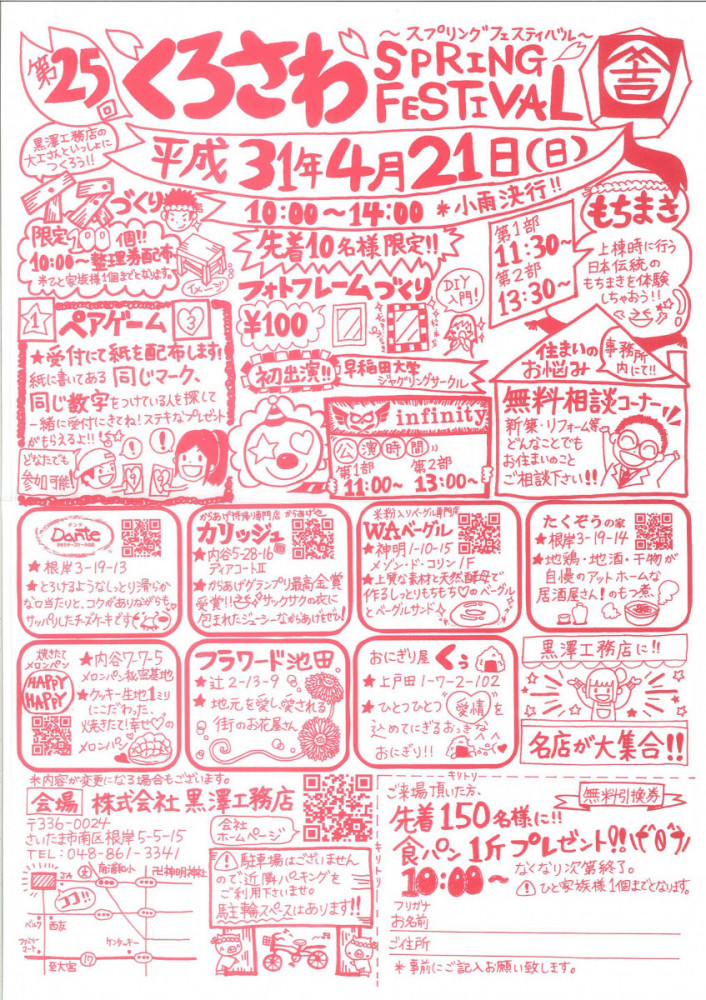 第25回
くろさわ
～スプリングフェスティバル～
SPRING
FESTIVAL
黒澤工務店の
大工さんといっしょに
つくろう!!
平成31年4月21日(日)
10:00～14:00 *小雨決行!!
イスづくり
限定100個!!
10:00～整理券配布
※ひと家族様1個までとなります。
イメージ
先着10名様限定!!
フォトフレームづくり
¥100
DIY
入門!
第1部
11:30～
第2部
13:30～
もちまき
上棟時に行う
日本伝統の
もちまきを体験
しちゃおう!!
1
ペアゲーム
3
★受付にて紙を配布します!
紙に書いてある同じマーク、
同じ数字をつけている人を探して
一緒に受付にきてね!ステキなプレゼント
がもらえるよ!!
どなたでも
参加可能!
初出演!!
早稲田大学
ジャグリングサークル
infinity
公演時間
第1部
11:00～
第2部
13:00～
住まいの
お悩み
事務所
内にて!!
無料相談コーナー
新築・リフォーム等
どんなことでも
お住まいのこと
ご相談下さい!!
ダンテ
Dante
★根岸3-19-13
★とろけるようなしっとり滑らか
な口当たりと、コクがありながらも
サッパリしたチーズケーキです
からあげ持帰り専門店 からあげや
カリッジュ
★内谷5-28-16
ディアコートⅡ
★からあげグランプリ最高金賞
受賞!!サックサクの衣に
包まれたジューシーなからあげをぜひ!
米粉入りベーグル専門店
WAベーグル
★神明1-10-15
メゾン・ド・コリン1F
★上質な素材と天然酵母で
作るしっとりもちもち♡のベーグル
とベーグルサンド
たくぞうの家
★根岸3-19-14
★地鶏・地酒・干物が
自慢のアットホームな
居酒屋さん!のもつ煮
焼きたて
メロンパン
HAPPY
HAPPY
★内谷7-7-5
メロンパン秘密基地
★クッキー生地1ミリ
にこだわった、
焼きたて!幸せ♡の
メロンパン
フラワード池田
★辻2-13-9
★地元を愛し愛される
街のお花屋さん
おにぎり屋 くぅ
★上戸田1-7-2-102
★ひとつひとつ愛情を
込めてにぎるおっきな
おにぎり!!
黒澤工務店に!!
名店が大集合!!
※内容が変更になる場合もございます。
会場 株式会社黒澤工務店
〒336-0024
さいたま市南区根岸5-5-15
TEL:048-861-3341
会社
ホームページ
駐車場はございません
ので近隣パーキングを
ご利用下さいませ。
駐輪スペースはあります!!
南浦和小
卍神明神社
ココ!!
ベルク
西友
ケンタッキー
至大宮
17
キリトリ
キリトリ
ご来場頂いた方、
無料引換券
先着150名様に!!
食パン1斤プレゼント!!
10:00～
なくなり次第終了。
ひと家族様1個までとなります。
フリガナ
お名前
ご住所
*事前にご記入お願い致します。